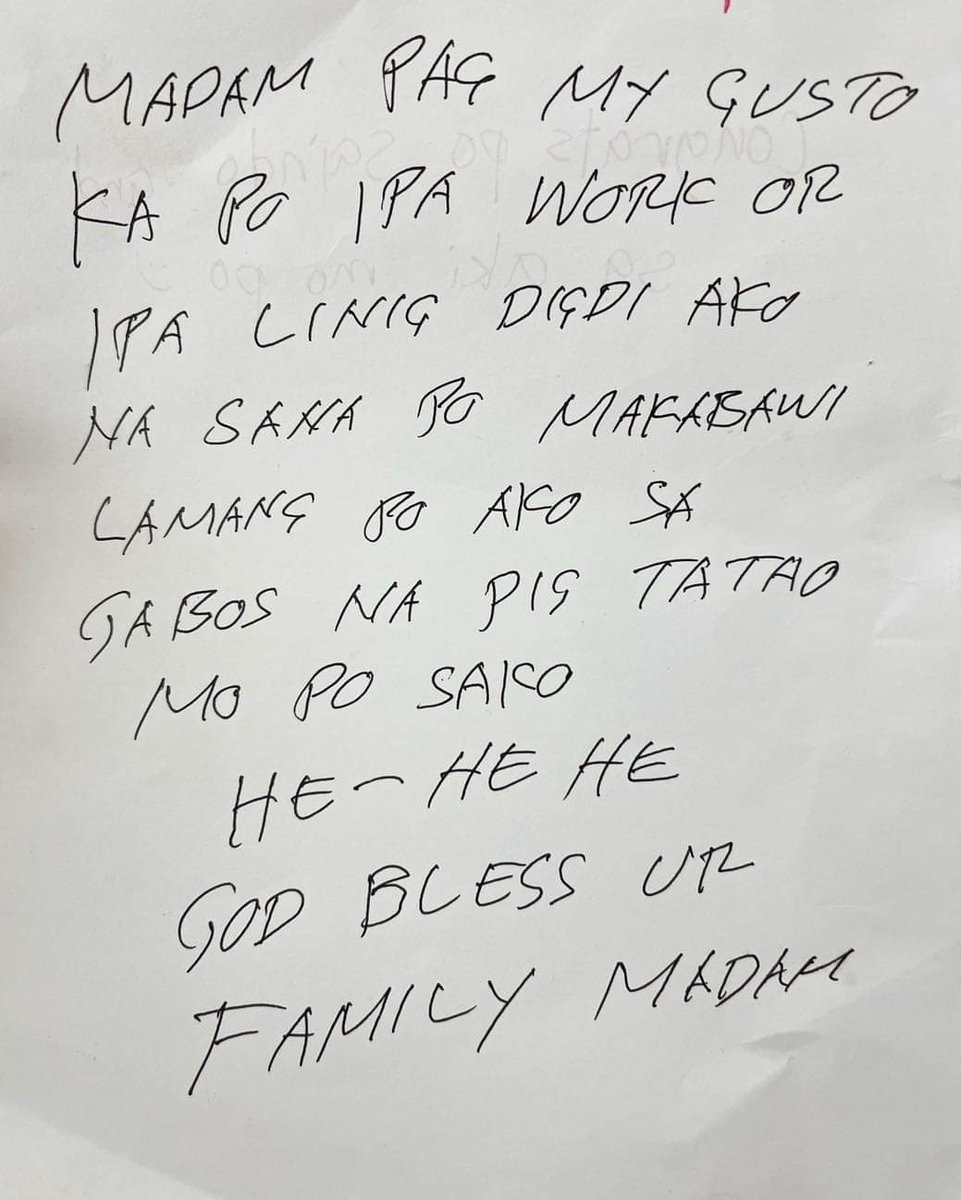 MADAM PAG MY GUSTO
KA PO IPA WORK OR
IPA LINIG DIGDI AKO
NA SANA PO MAKABAWI
LAMANG PO AKO SA
GABOS NA PIG TATAO
MO PO SAKO
HE - HE HE
GOD BLESS UR
FAMILY MADAM